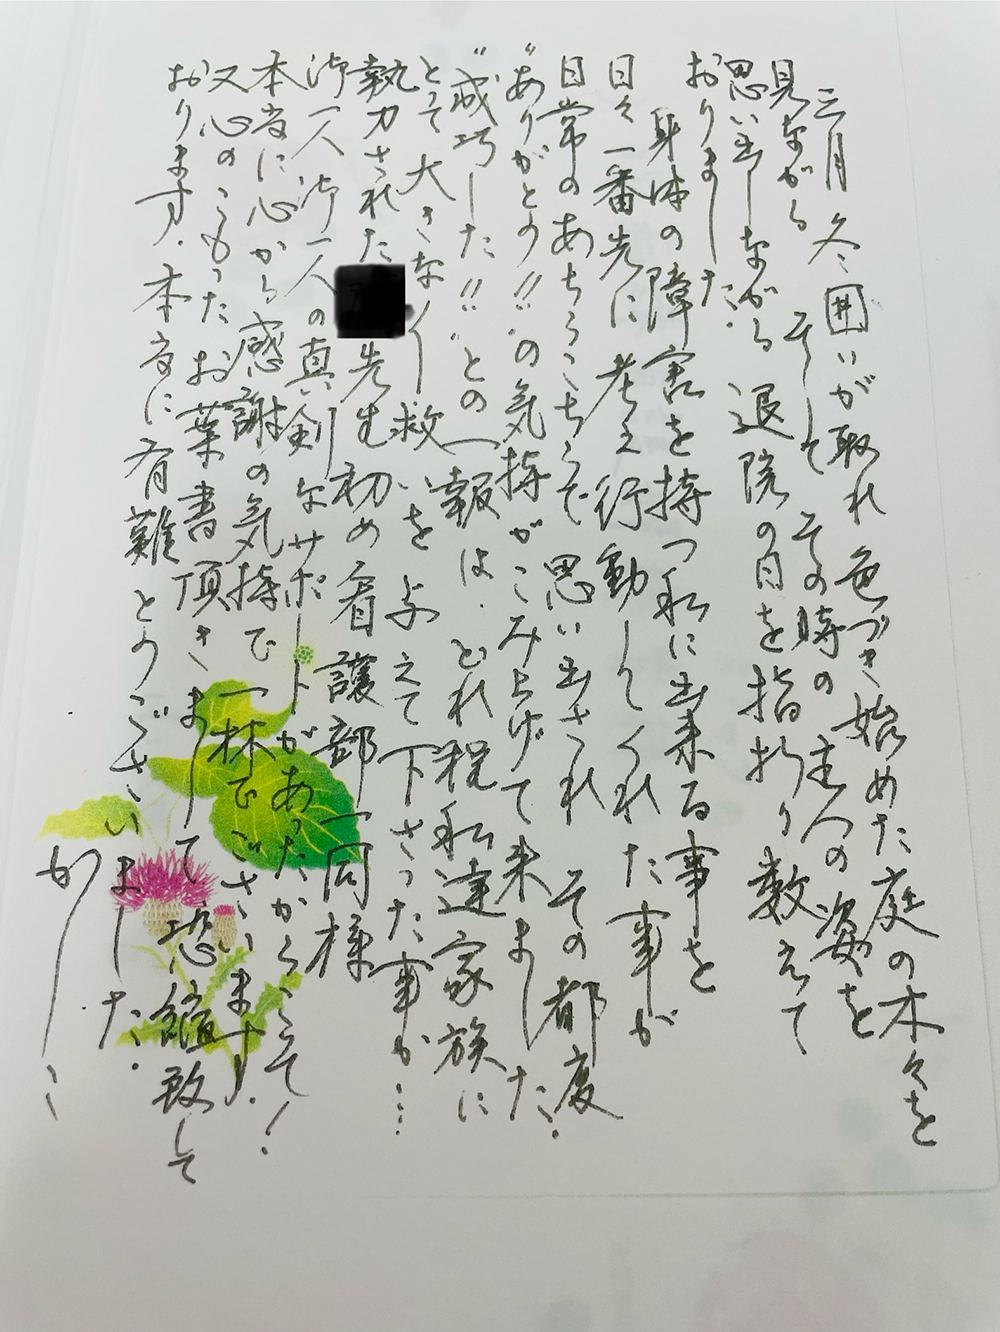 三月 冬囲いが取れ 色づき始めた庭の木々を
見ながら そして その時の主人の姿を
思い出しながら 退院の日を指折り数えて
おりました.
身体の障害を持つ私に出来る事を
日々一番先に考え行動してくれた事が
日常のあちらこちらで思い出され その都度
"ありがとう!!"の気持がこみ上げて来ました.
"成功した!!"との一報は. どれ程私達家族に
とって大きなー救いを与えて下さった事か…
執刀された 先生初め看護部一同様
御一人御一人の真剣なサポートがあったからこそ!
本当に心から感謝の気持で一杯でございます.
又心のこもったお葉書頂きまして恐縮致して
おります. 本当に有難とうございました.
かしこ